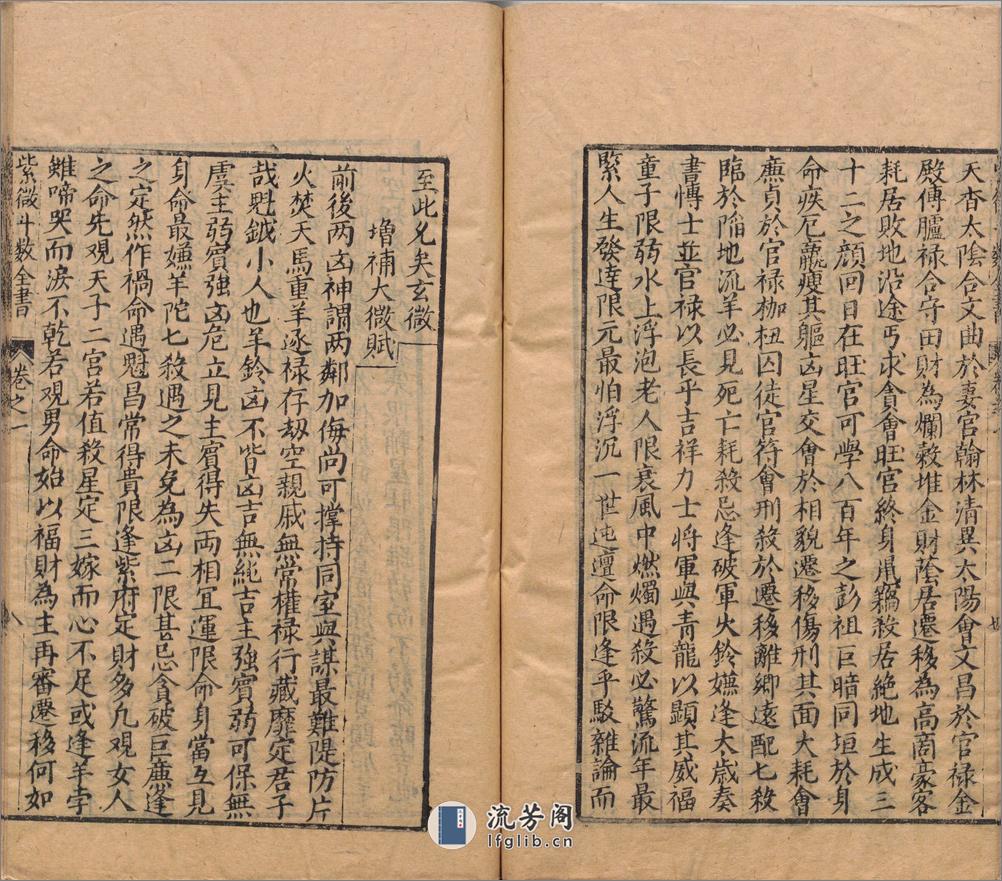 天杳太陰合文曲於妻宮翰林清異太陽會文昌於官禄金
殿傳臚禄合守田財為爛穀堆金財陰居遷移為高商豪客
耗居敗地沿途丐求貪會旺宮終身鼠竊殺居絶地生成三
十二之顔回日在旺宮可學八百年之彭祖巨暗同垣於身
命疾厄羸瘦其軀凶星交會於相貌遷移傷刑其面大耗會
廉貞於官禄枷杻囚徒官符會刑殺於遷移離鄉遠配七殺
臨於陷地流羊必見死亡耗殺忌逢破軍火鈴嫌逢太歳奏
書博士並官禄以長乎吉祥力士將軍與青龍以顕其威福
童子限弱水上浮泡老人限衰風中燃燭遇殺必驚流年最
緊人生發達限元最怕浮沉一世迍邅命限逢乎駁雜論而
至此允矣玄微
増補大微賦
前後两凶神謂两鄰加侮尚可撑持同室與謀最難隄防片
火焚天馬重羊逐禄存刼空親戚無常權禄行藏靡定君子
哉魁鉞小人也羊鈴凶不皆凶吉無純吉主強賓弱可保無
虞主弱賓強凶危立見主賓得失両相宜運限命身當互見
身命最嫌羊陀七殺遇之未免為凶二限甚忌貪破巨廉逢
之定然作禍命遇魁昌常得貴限逢紫府定財多凡觀女人
之命先觀夭子二宮若值殺星定三嫁而心不足或逢羊孛
雖啼哭而淚不乾若觀男命始以福財為主再審遷移何如
紫微斗数全書 卷之一 八
流芳阁
lfglib.cn